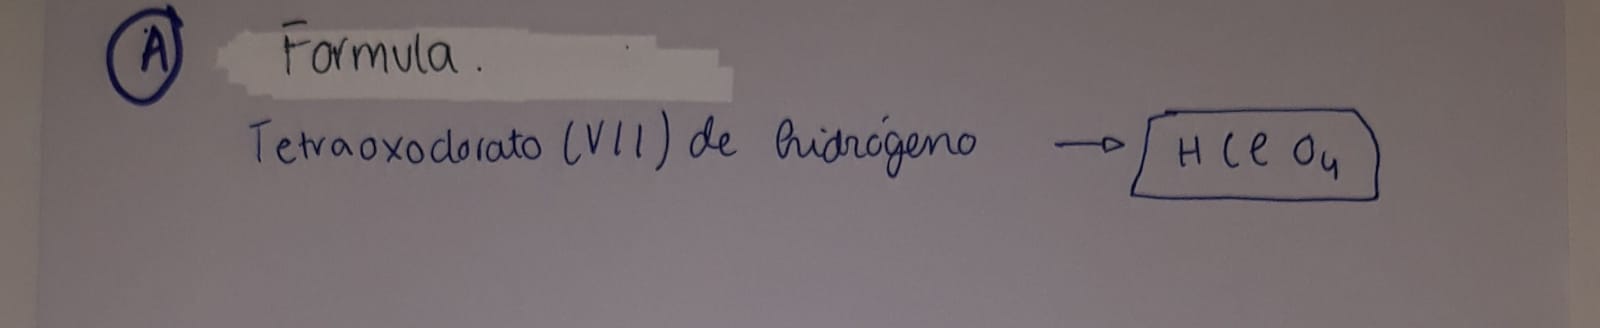 A Formula.
Tetraoxoclorato (VII) de hidrógeno → HClO₄